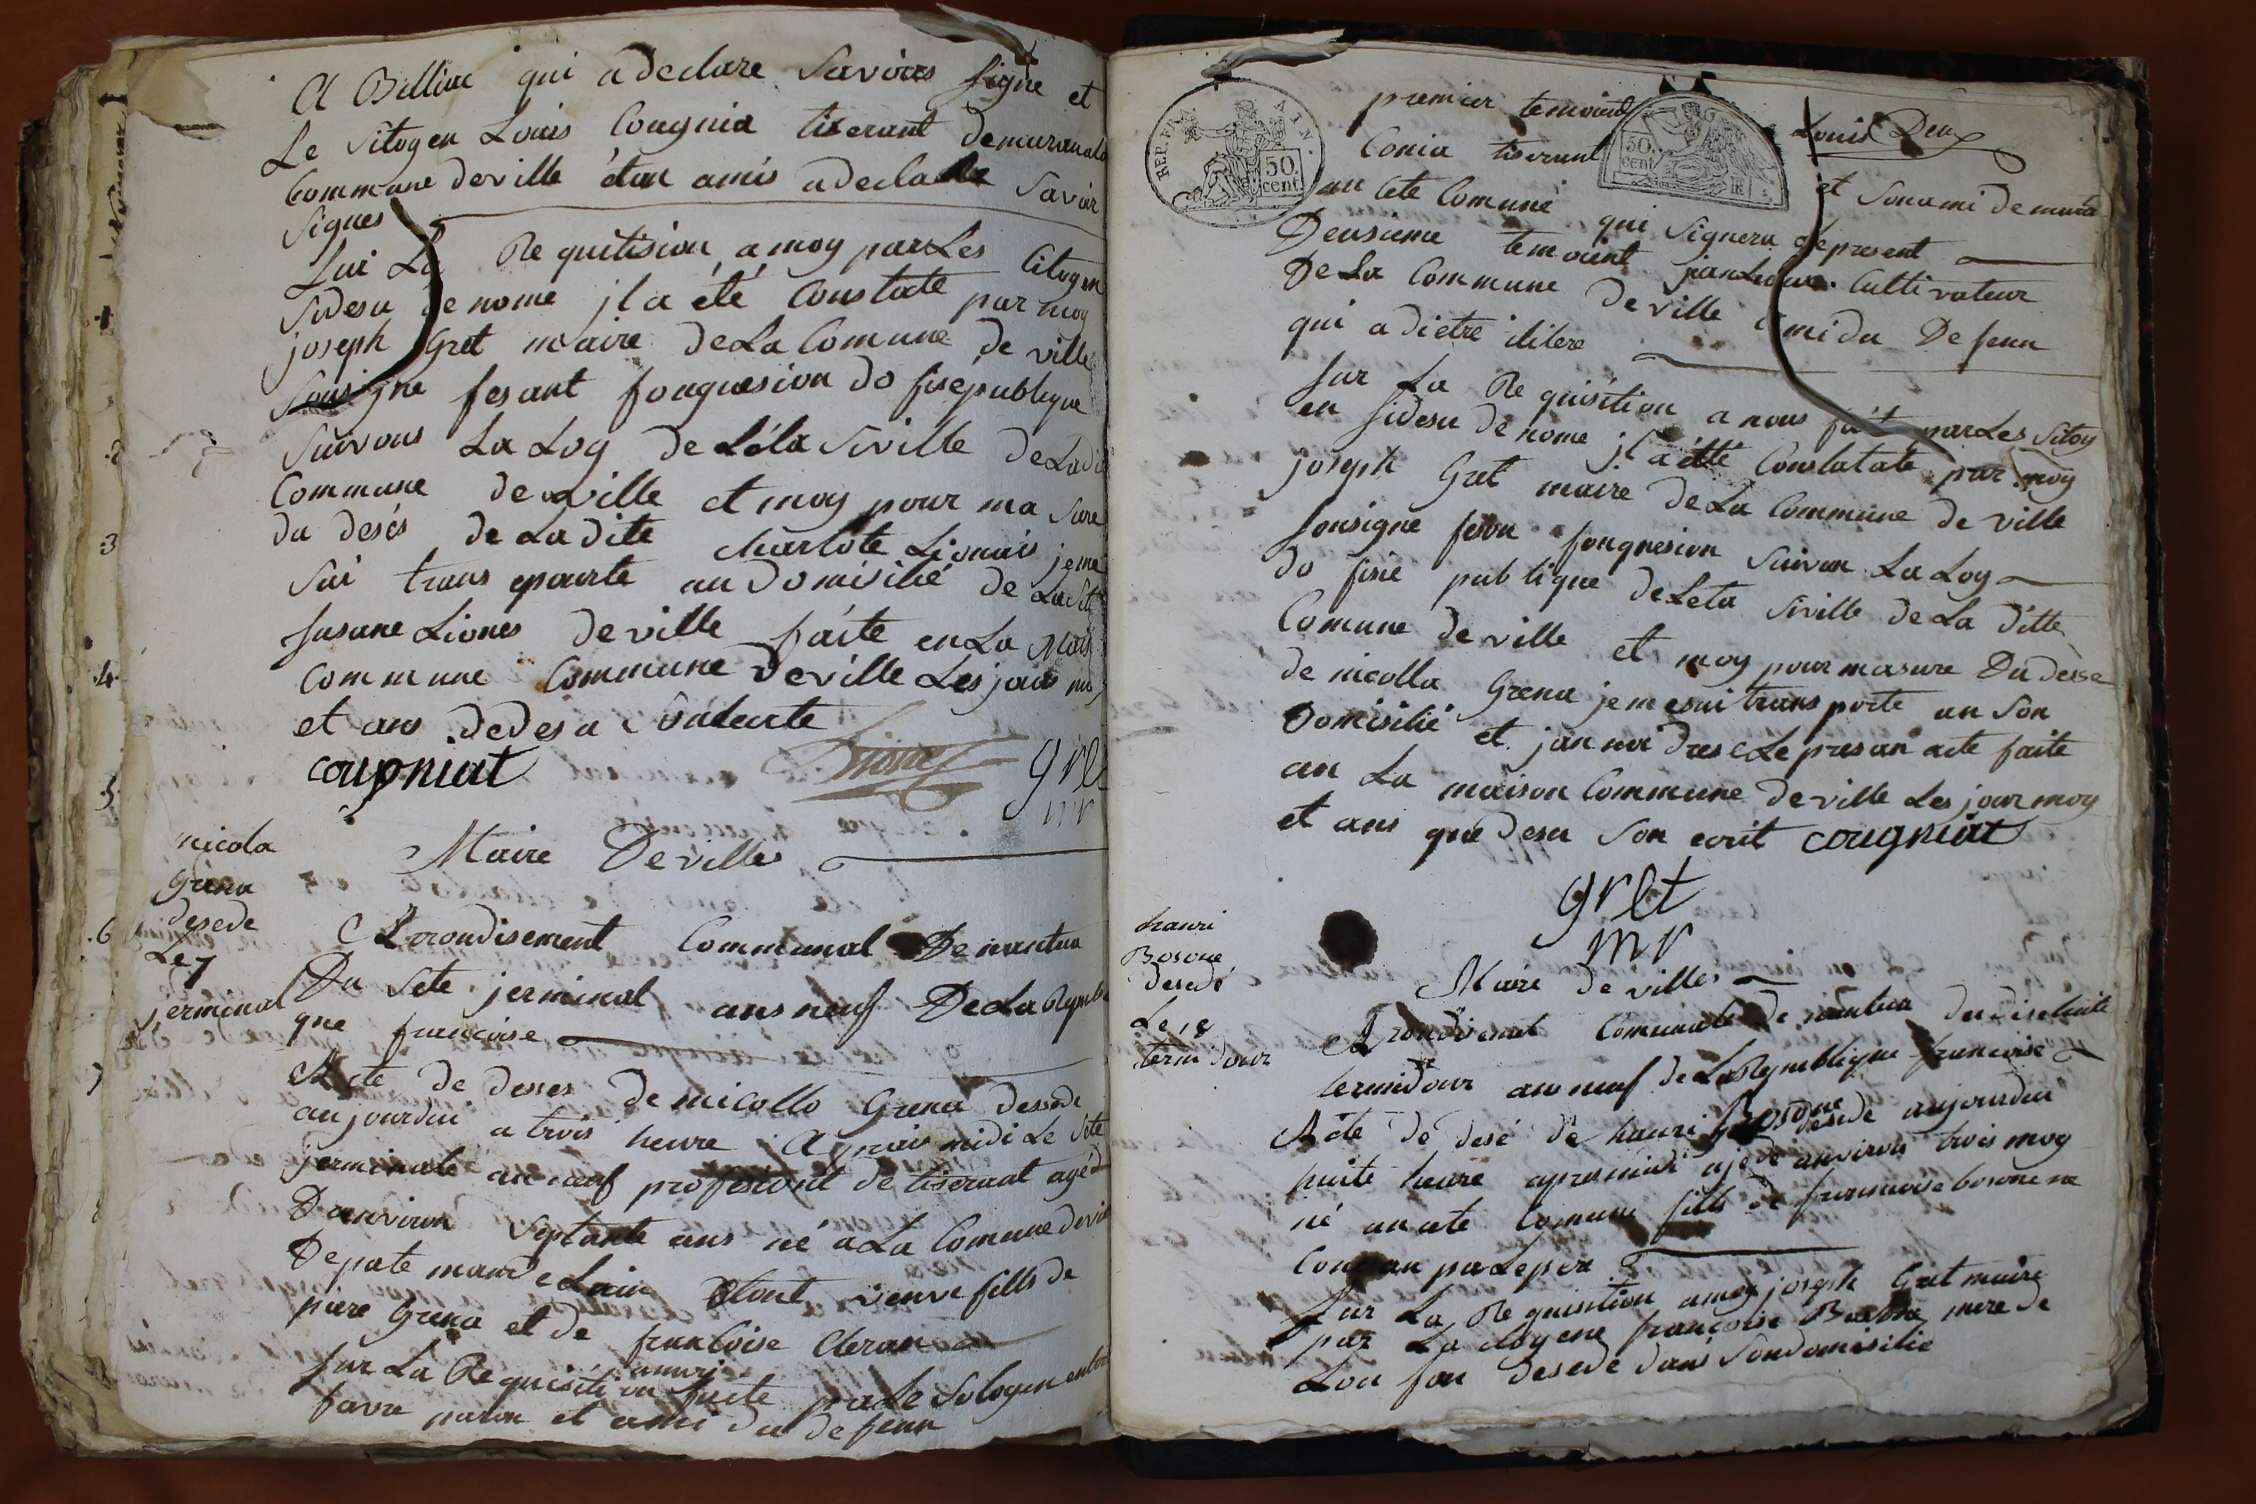 A Billiac qui a declare savoirs signe et
Le sitogen Louis Cougnia tiserant demuranala
Commune deville étan amis a declare savoir
signes
Sui La Requitision a moy par Les Citogen
sidesu de nome jl a été Constate par moy
joseph Gret maire de La Comune de ville
sousigne fesant fonguesion do fisepublique
suivans La Loy de Léta siville De Ladi
Commune de ville et moy pour ma sure
du desés de La dite charlote Lionais je me
sui trans pourte au Domisilié de La dit
susane Liones de ville faite en La Mais
commune Commune de ville Les jour moy
et ans dedesu
cougniat gret
mr
Maire Deville
nicola
Grena
desede
Le 7
jerminal
Arondisement Communal De nantua
Du sete jerminal ans neuf De La Republi
que francoise
Acte de deses de nicollo Grena desede
aujourdui a trois heure Apraismidi Le sete
jerminale an neuf profesiont de tiserant agé d
Danviron septante ans né a La Comune devil
Depate mant de Lain etant veuve fills de
piere Grena et de francoise Cleran
anuri
sur La Requisition faite par Le sitogen
favre paran et ami du defunn
REP. FRA. AIN.
50 cent.
50 cent
premier temoient Louis Deu
Conia tiserant et son ami demura
an cete Comune qui signera le present
Deusieme temoient jan Cultivateur
De La Commune de ville ami du Defunn
qui a dietre ilitere
sur La Requisition a nous fait par Les sitoy
en sidesu de nome jl a été Constatate par moy
joseph Gret maire de La Commune de ville
sousigne feson fonguesion suivan La Loy
do fisie publique de Leta siville de La ditte
Comune de ville et moy pour masure Du dese
de nicolla Grena je me sui transporte an son
Domisilié et jan nai drese Le presan acte faite
an La maison Commune de ville Les jour moy
et ans que desu son ecrit cougniat
gret
mr
Maire de ville
hanri
Bosone
desedé
Le 18
termidour
Arondisement Comunale De nantua du disehuite
termidour an neuf de La Republique francoise
Acte de desé de hanri Bosone desede aujourdui
huite heure apremidi aje de anviron trois moy
né an cete Comune fills de francoise bosone ne
Conesan pa Le pere
sur La Requisition a moy joseph Gret maire
par La sitogene françoise Bosone mere de
Lon fan desede dans son domisilie